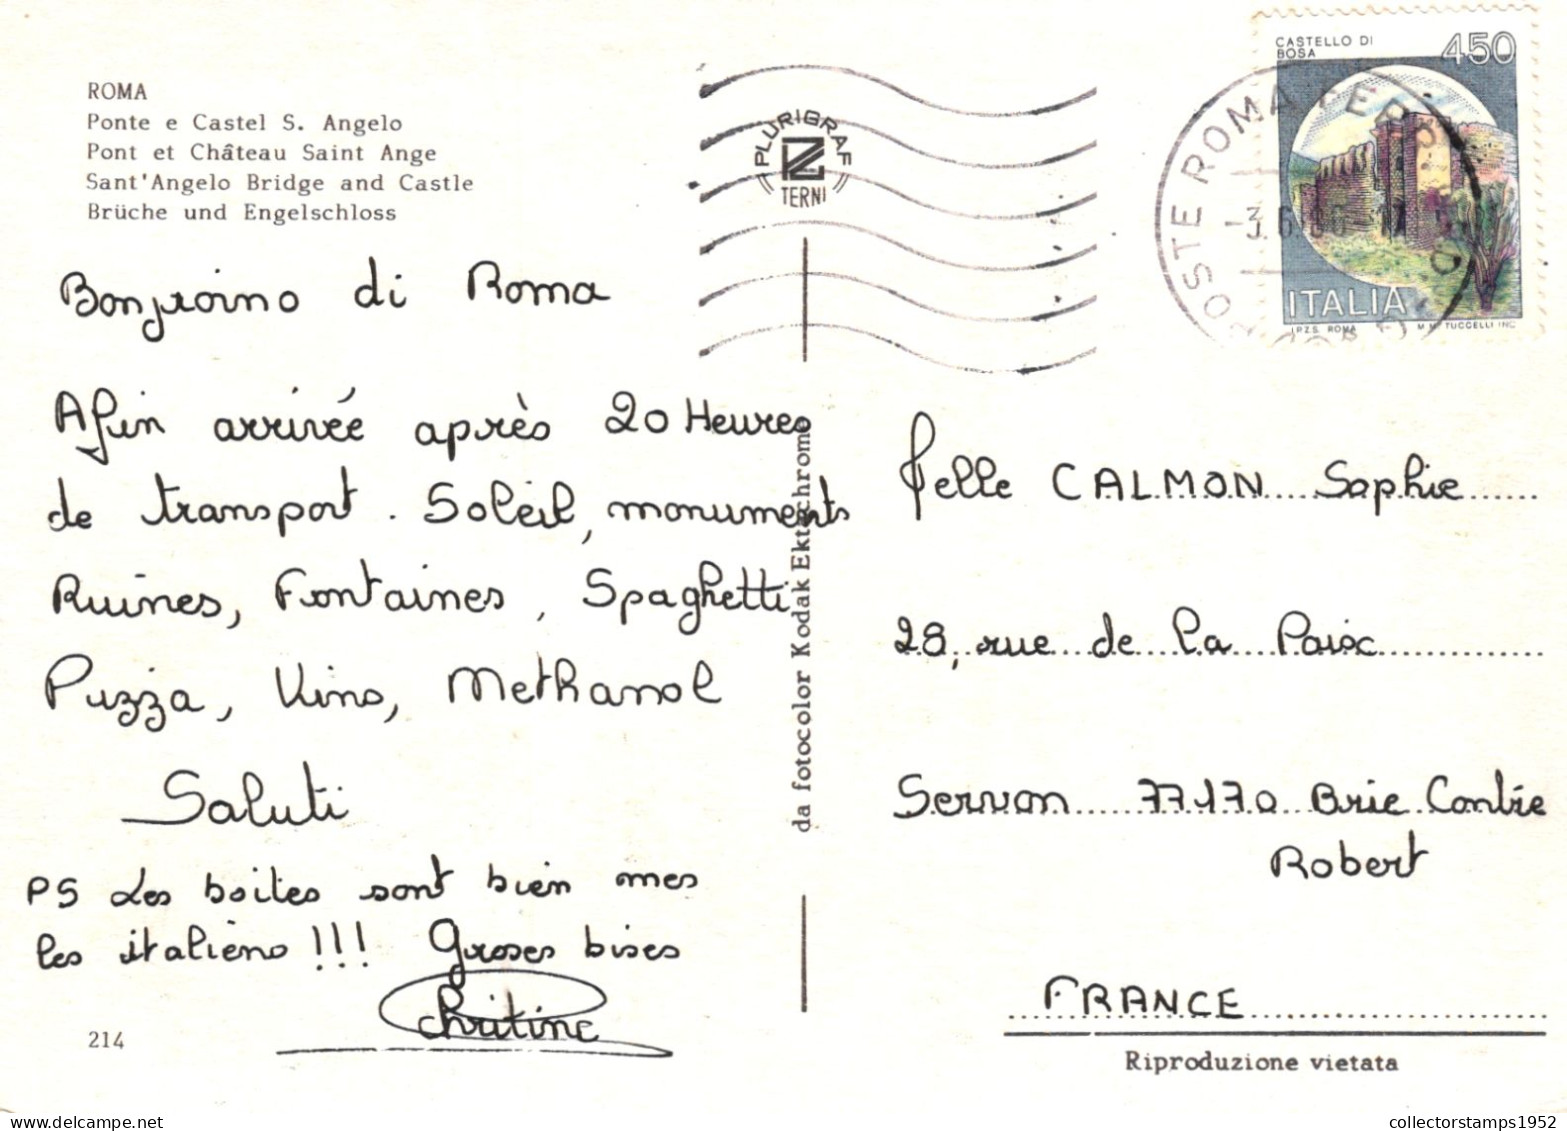 ROMA
Ponte e Castel S. Angelo
Pont et Château Saint Ange
Sant'Angelo Bridge and Castle
Brüche und Engelschloss
PLURIGRAF
TERNI
CASTELLO DI
BOSA
450
ITALIA
I.P.Z.S. ROMA M.M. TUCCELLI INC.
POSTE ROMA
Bonjroirno di Roma
Afin arrivée après 20 Heures
de transport. Soleil, monuments
Ruines, Fontaines, Spaghetti
Puzza, Vins, Methanol
Saluti
PS Les boites sont bien mes
les italiens !!! Groses bises
Christine
214
da fotocolor Kodak Ektachrome
Melle CALMON Sophie
28, rue de la Paix
Servon 77170 Brie Combte
Robert
FRANCE
Riproduzione vietata
collectorstamps1952